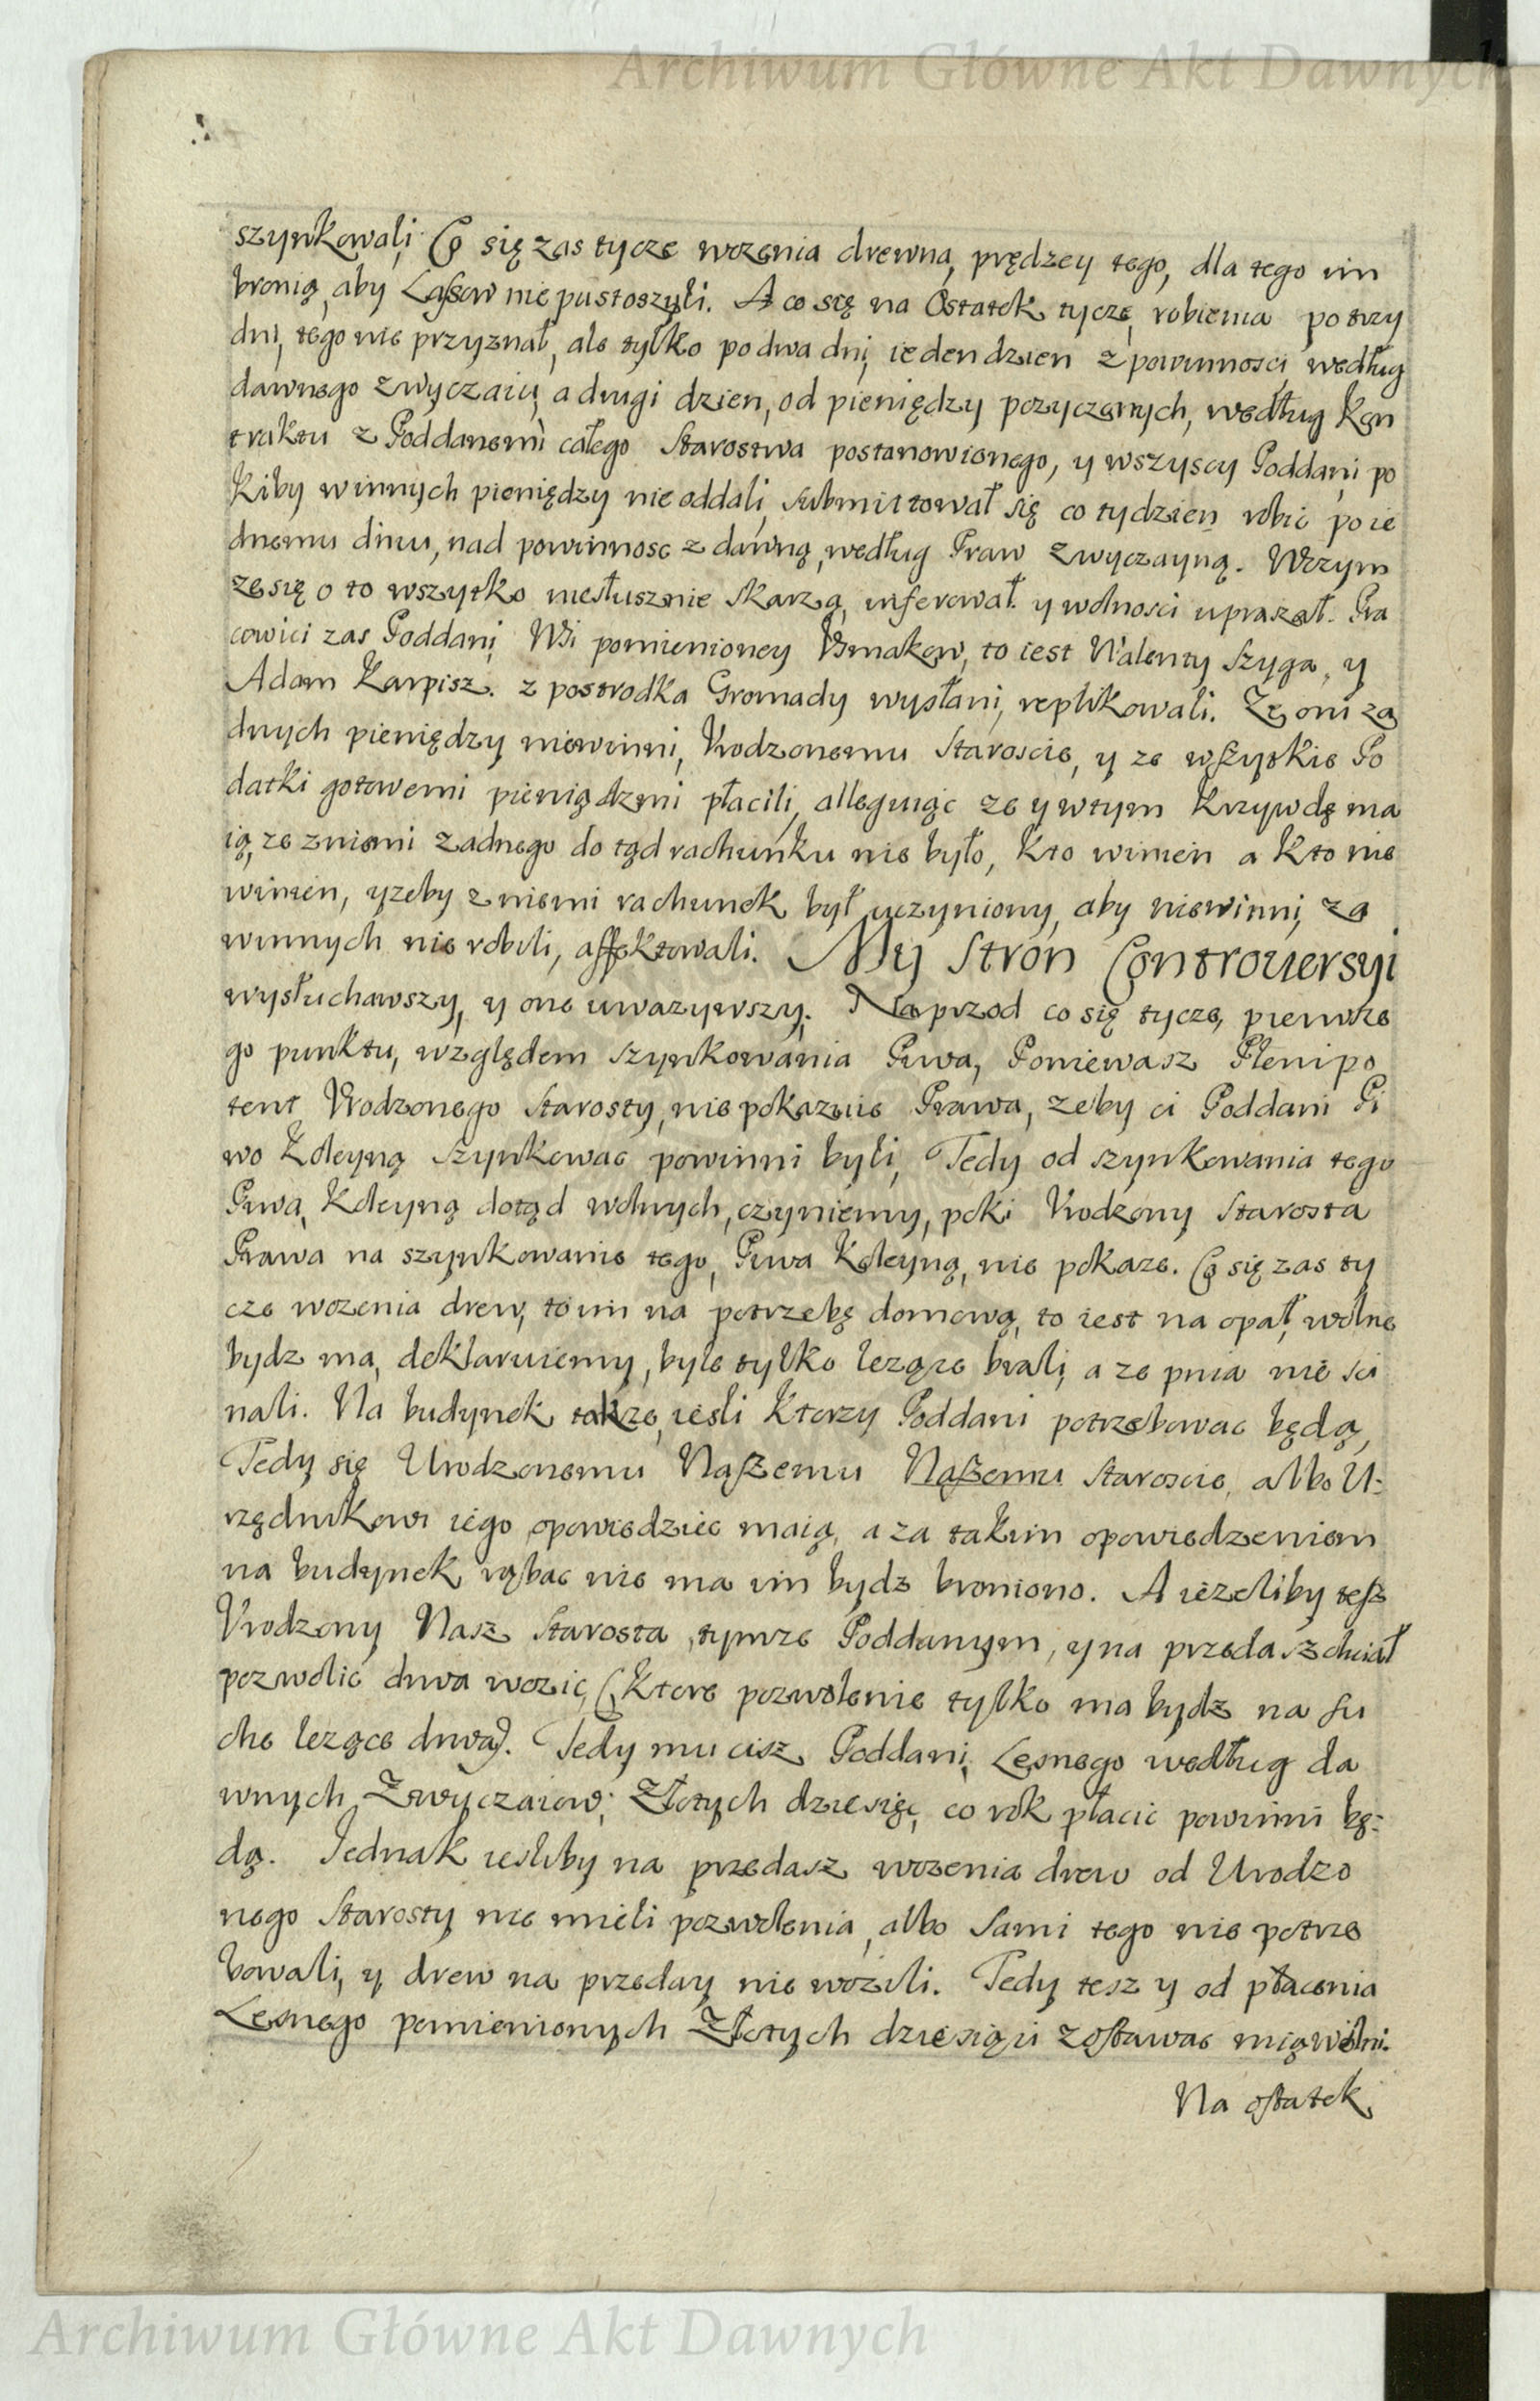 Archiwum Główne Akt Dawnych
szynkowali, Co się zas tycze wozenia drewna, prędzey tego, dla tego im
bronią, aby Lasow nie pustoszyli. A co się na Ostatek tycze, robienia po trzy
dni, tego nie przyznał, ale tylko po dwa dni, ieden dzien z powinnosci, według
dawnego zwyczaiu, a drugi dzien, od pieniędzy pozyczonych, według Kon
traktu z Poddanemi całego Starostwa postanowionego, y wszyscy Poddani, po
kiby winnych pieniędzy nie oddali, submittował się co tydzien robic po ie
dnemu dniu, nad powinnosc z dawną, według Praw zwyczayną. W czym
ze się o to wszytko niesłusznie skarzą, inferował y wolnosci upraszał. Pra
cowici zas Poddani, Wsi pomienioney to iest Walenty Szyga, y
Adam Karpisz. z posrodka Gromady wysłani, replikowali. Ze oni za
dnych pieniędzy niewinni, Vrodzonemu Staroscie, y ze wszytkie Po
datki gotowemi pieniądzmi płacili, alleguiąc ze y w tym krzywdę ma
ią, ze zniemi zadnego do tąd rachunku nie było, kto winien a kto nie
winien, yzeby zniemi rachunek był uczyniony, aby niewinni, za
winnych nie robili, affektowali. My Stron Controuersyi
wysłuchawszy, y one uwazywszy. Naprzod co się tycze, pierwsze
go punktu, względem szynkowania Piwa, Poniewasz Plenipo
tent Vrodzonego Starosty, nie pokazuie Prawa, zeby ci Poddani Pi
wo Koleyną szynkowac powinni byli, Tedy od szynkowania tego
Piwa, Koleyną dotąd wolnych, czyniemy, poki Vrodzony Starosta
Prawa na szynkowanie tego, Piwa Koleyną, nie pokaze. Co się zas ty
cze wozenia drew, to im na potrzebę domową, to iest na opał, wolne
bydz ma, deklaruiemy, byle tylko lezące brali, a ze pnia nie sci
nali. Na budynek takze, iesli ktorzy Poddani potrzebowac będą,
Tedy się Urodzonemu Naszemu Naszemu Staroscie, albo U:
rzędnikowi iego opowiedziec maią, a za takim opowiedzeniem
na budynek, rąbac nie ma im bydz broniono. A iezeliby tesz
Vrodzony Nasz Starosta, tymze Poddanym, y na przedasz chciał
pozwolic drwa wozic, (ktore pozwolenie tylko ma bydz na su
che lezące drwa). Tedy mu cisz Poddani, Lesnego według da
wnych Zwyczaiow, Złotych dziesięc, co rok płacic powinni bę:
dą. Jednak iesliby na przedasz wozenia drew od Urodzo
nego Starosty nie mieli pozwolenia, albo sami tego nie potrze
bowali, y drew na przeday nie wozili. Tedy tesz y od płacenia
Lesnego pomienionych Złotych dziesiąci zostawac maią wolni.
Na ostatek
Archiwum Główne Akt Dawnych